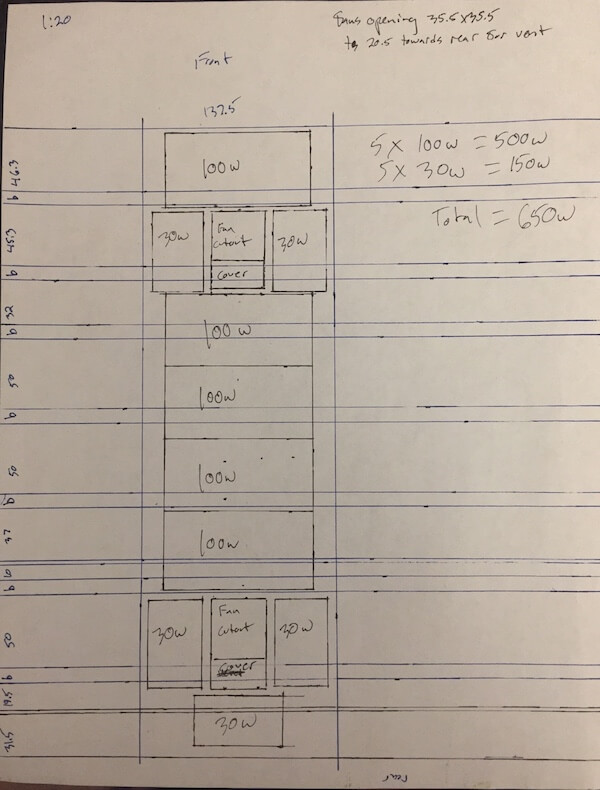 1:20
Fans opening 35.5x35.5
to 20.5 towards rear for vent
Front
137.5
5 x 100w = 500w
5 x 30w = 150w
Total = 650w
46.3
9
45.3
9
32
9
50
9
50
9
37
10
9
50
9
19.5
31.5
100w
30w
Fan
cutout
cover
30w
100w
100w
100w
100w
30w
Fan
cutout
cover
30w
30w
rear